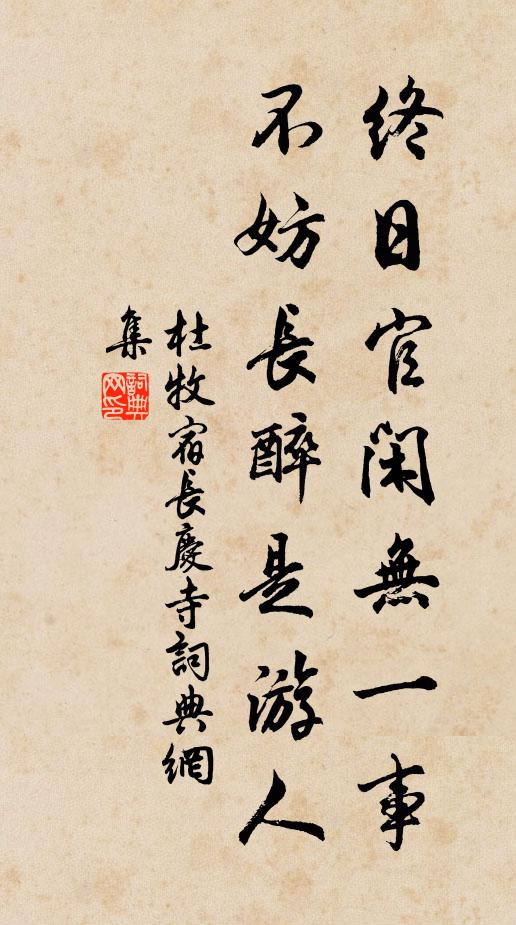 終日官閑無一事
不妨長醉是游人
杜牧宿長慶寺詞典網
集
詞典網印